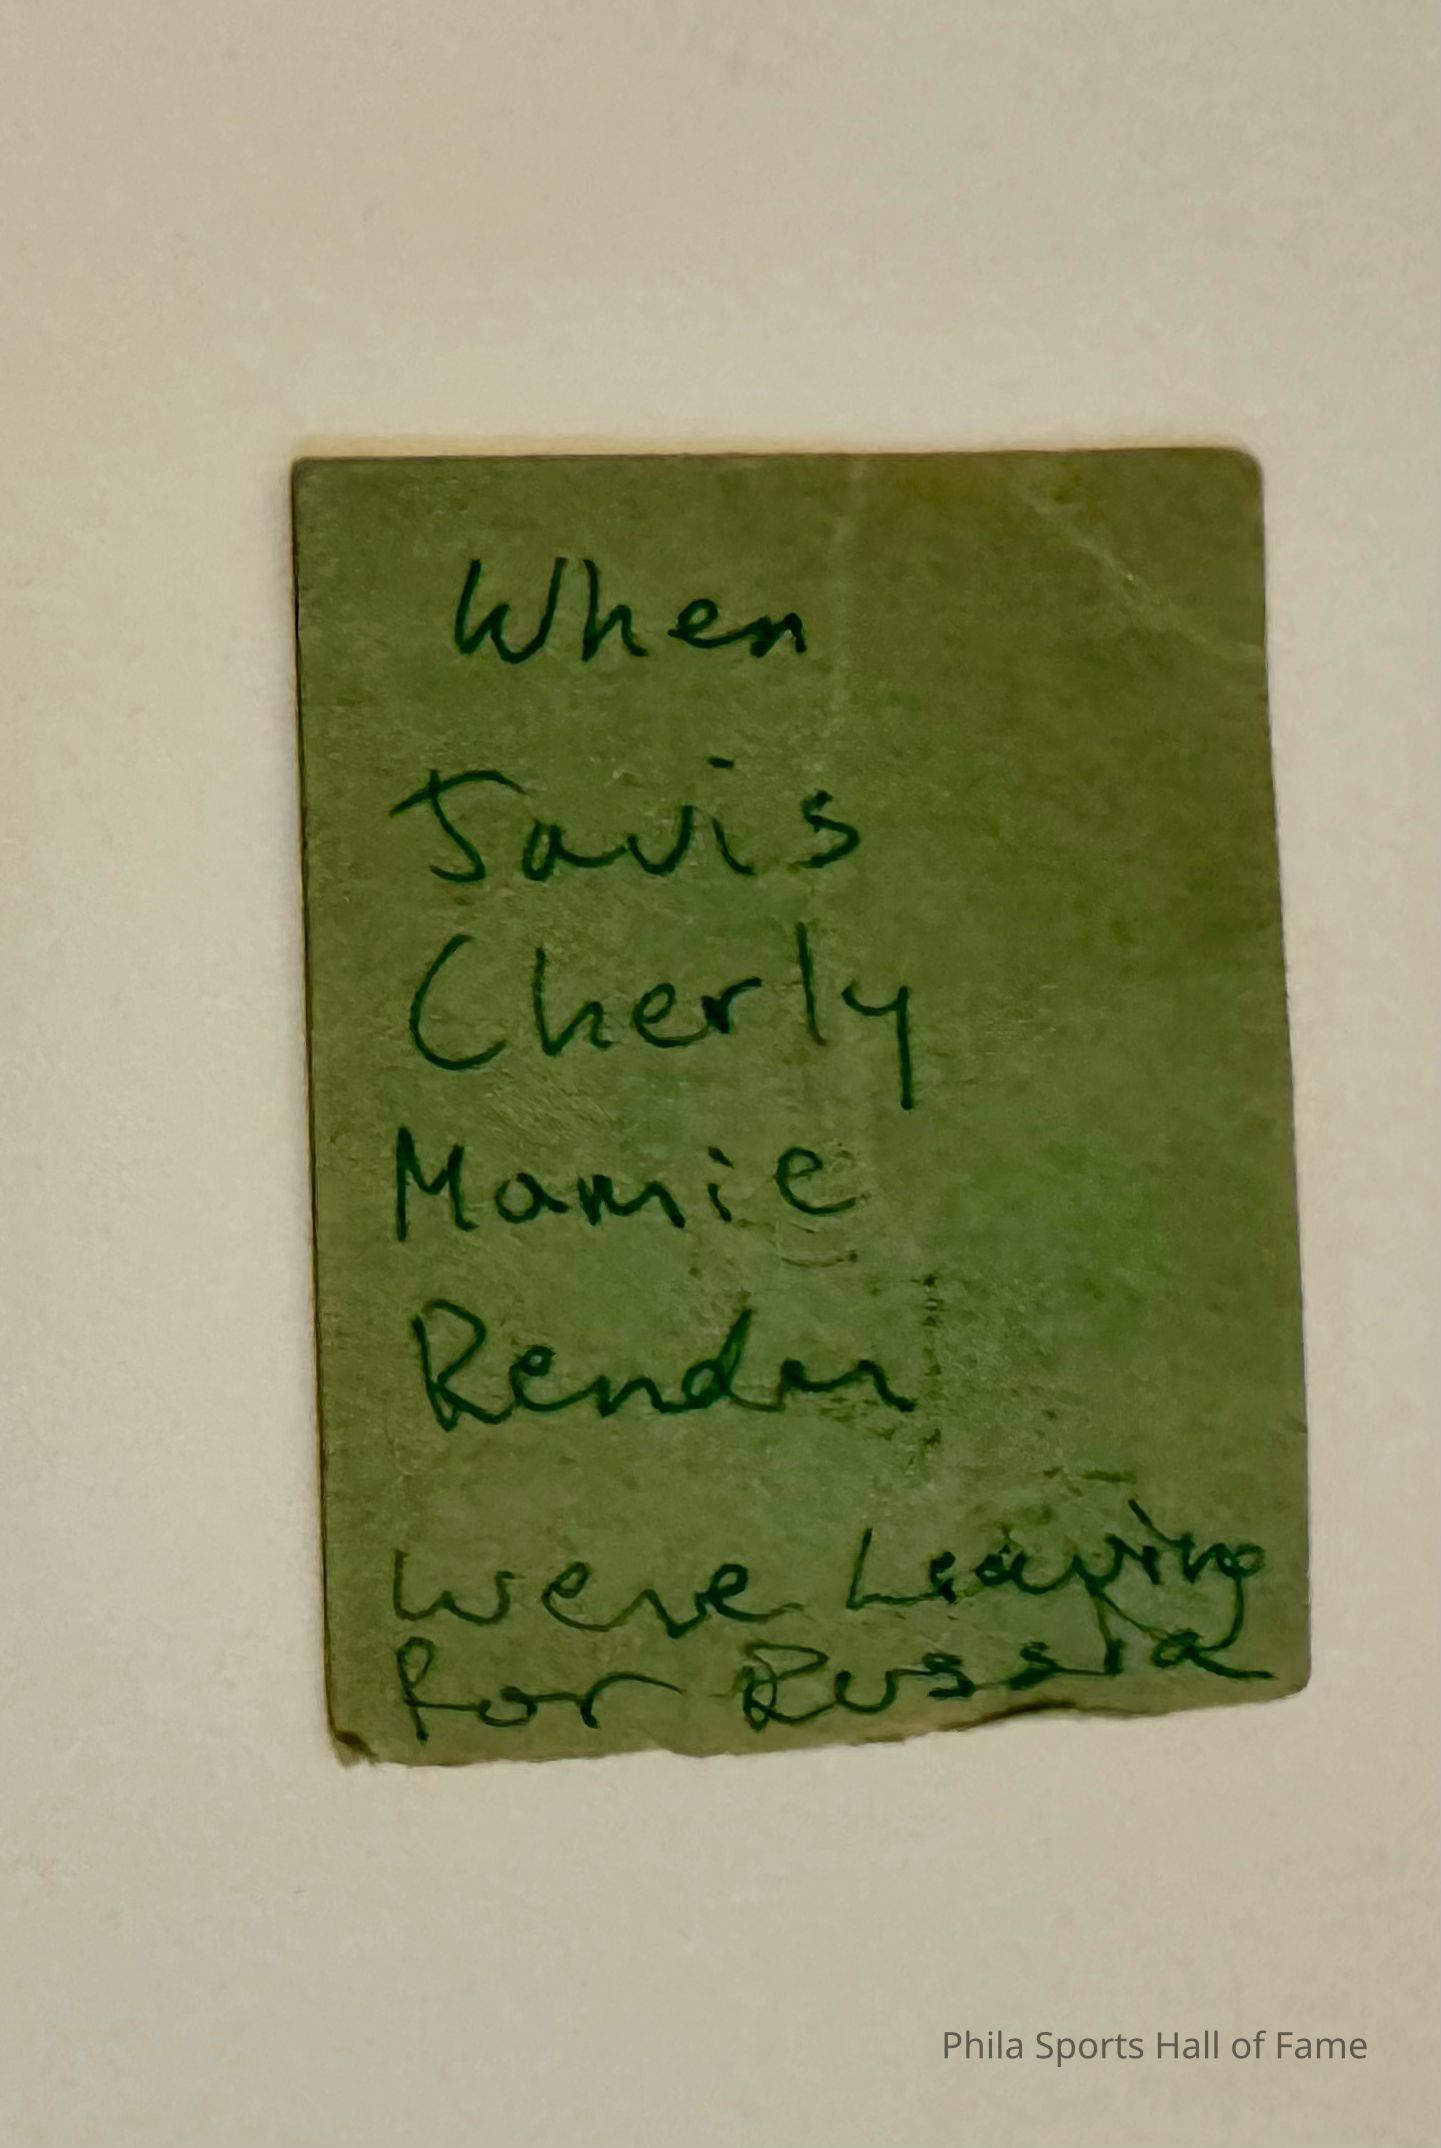 When
Javis
Cherly
Mamie
were Leaving
for Russia
Phila Sports Hall of Fame